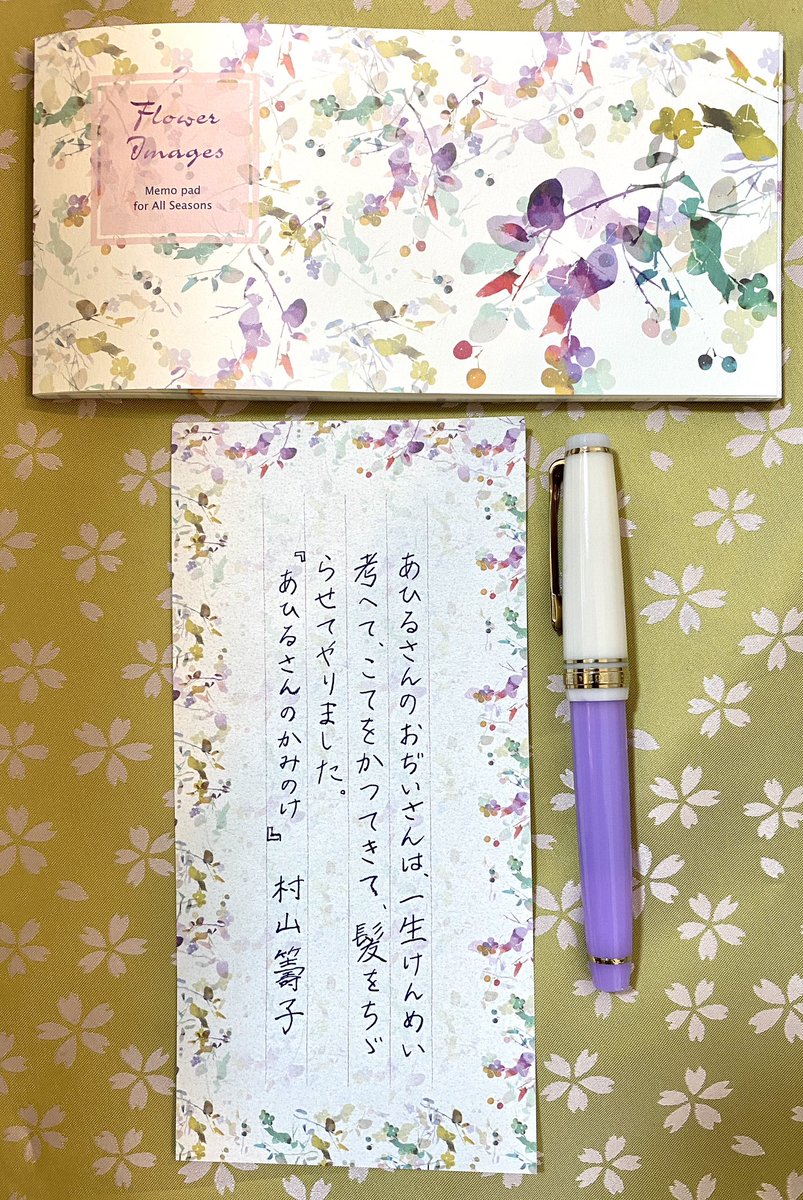 Flower
Images
Memo pad
for All Seasons
あひるさんのおぢいさんは、一生けんめい
考へて、こてをかつてきて、髪をちゞ
らせてやりました。
『あひるさんのかみのけ』 村山籌子